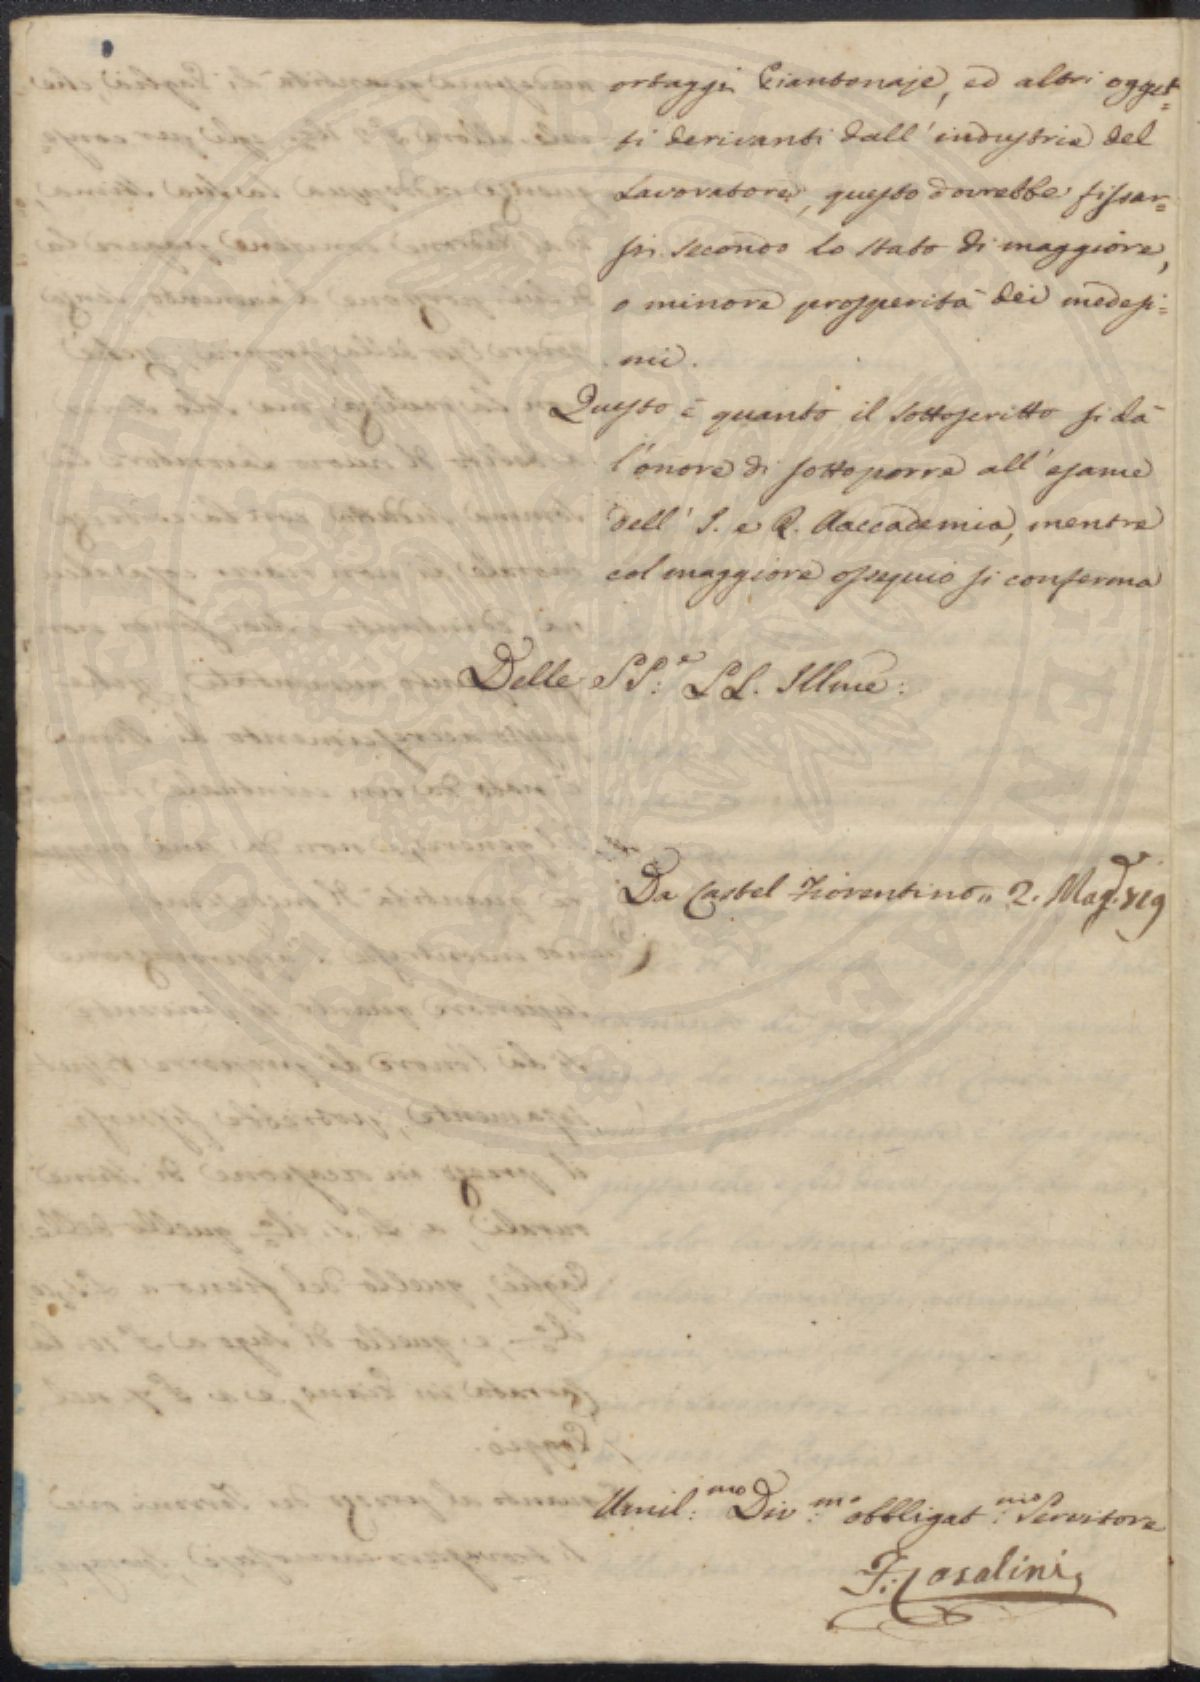 ortaggi Piantonaje, ed altri ogget=
ti derivanti dall' industria del
Lavoratore, questo dovrebbe fissar=
si secondo lo stato di maggiore,
o minore prosperità dei medesi=
mi.
Questo è quanto il sottoscritto si dà
l'onore di sottoporre all' esame
dell' I. e R. Aaccademia, mentre
col maggiore ossequio si conferma
Delle SS:e LL. Illme:
Da Castel Fiorentino 2. Mag. 819
Umil:mo Div:mo obbligat:mo Servitore